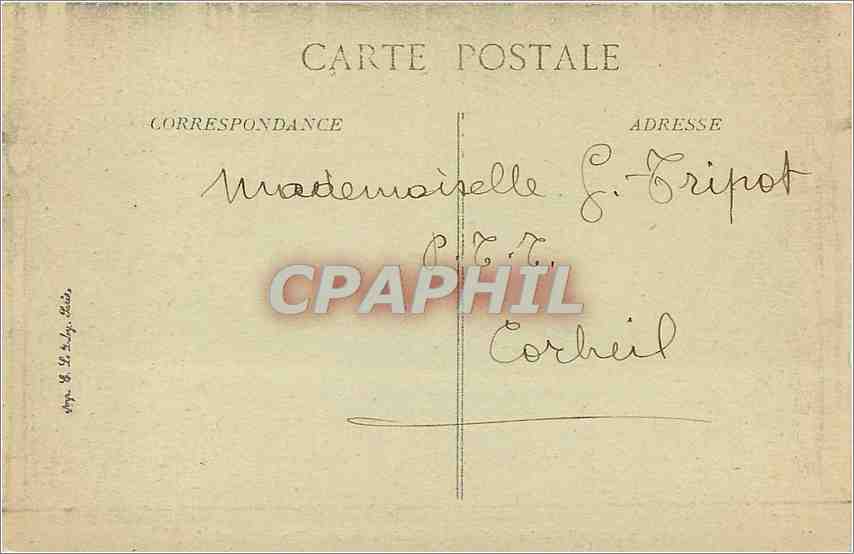 CARTE POSTALE
CORRESPONDANCE
ADRESSE
Mademoiselle G. Tripot
P.T.T.
CPAPHIL
Corbeil
Imp. E. Le Deley, Paris